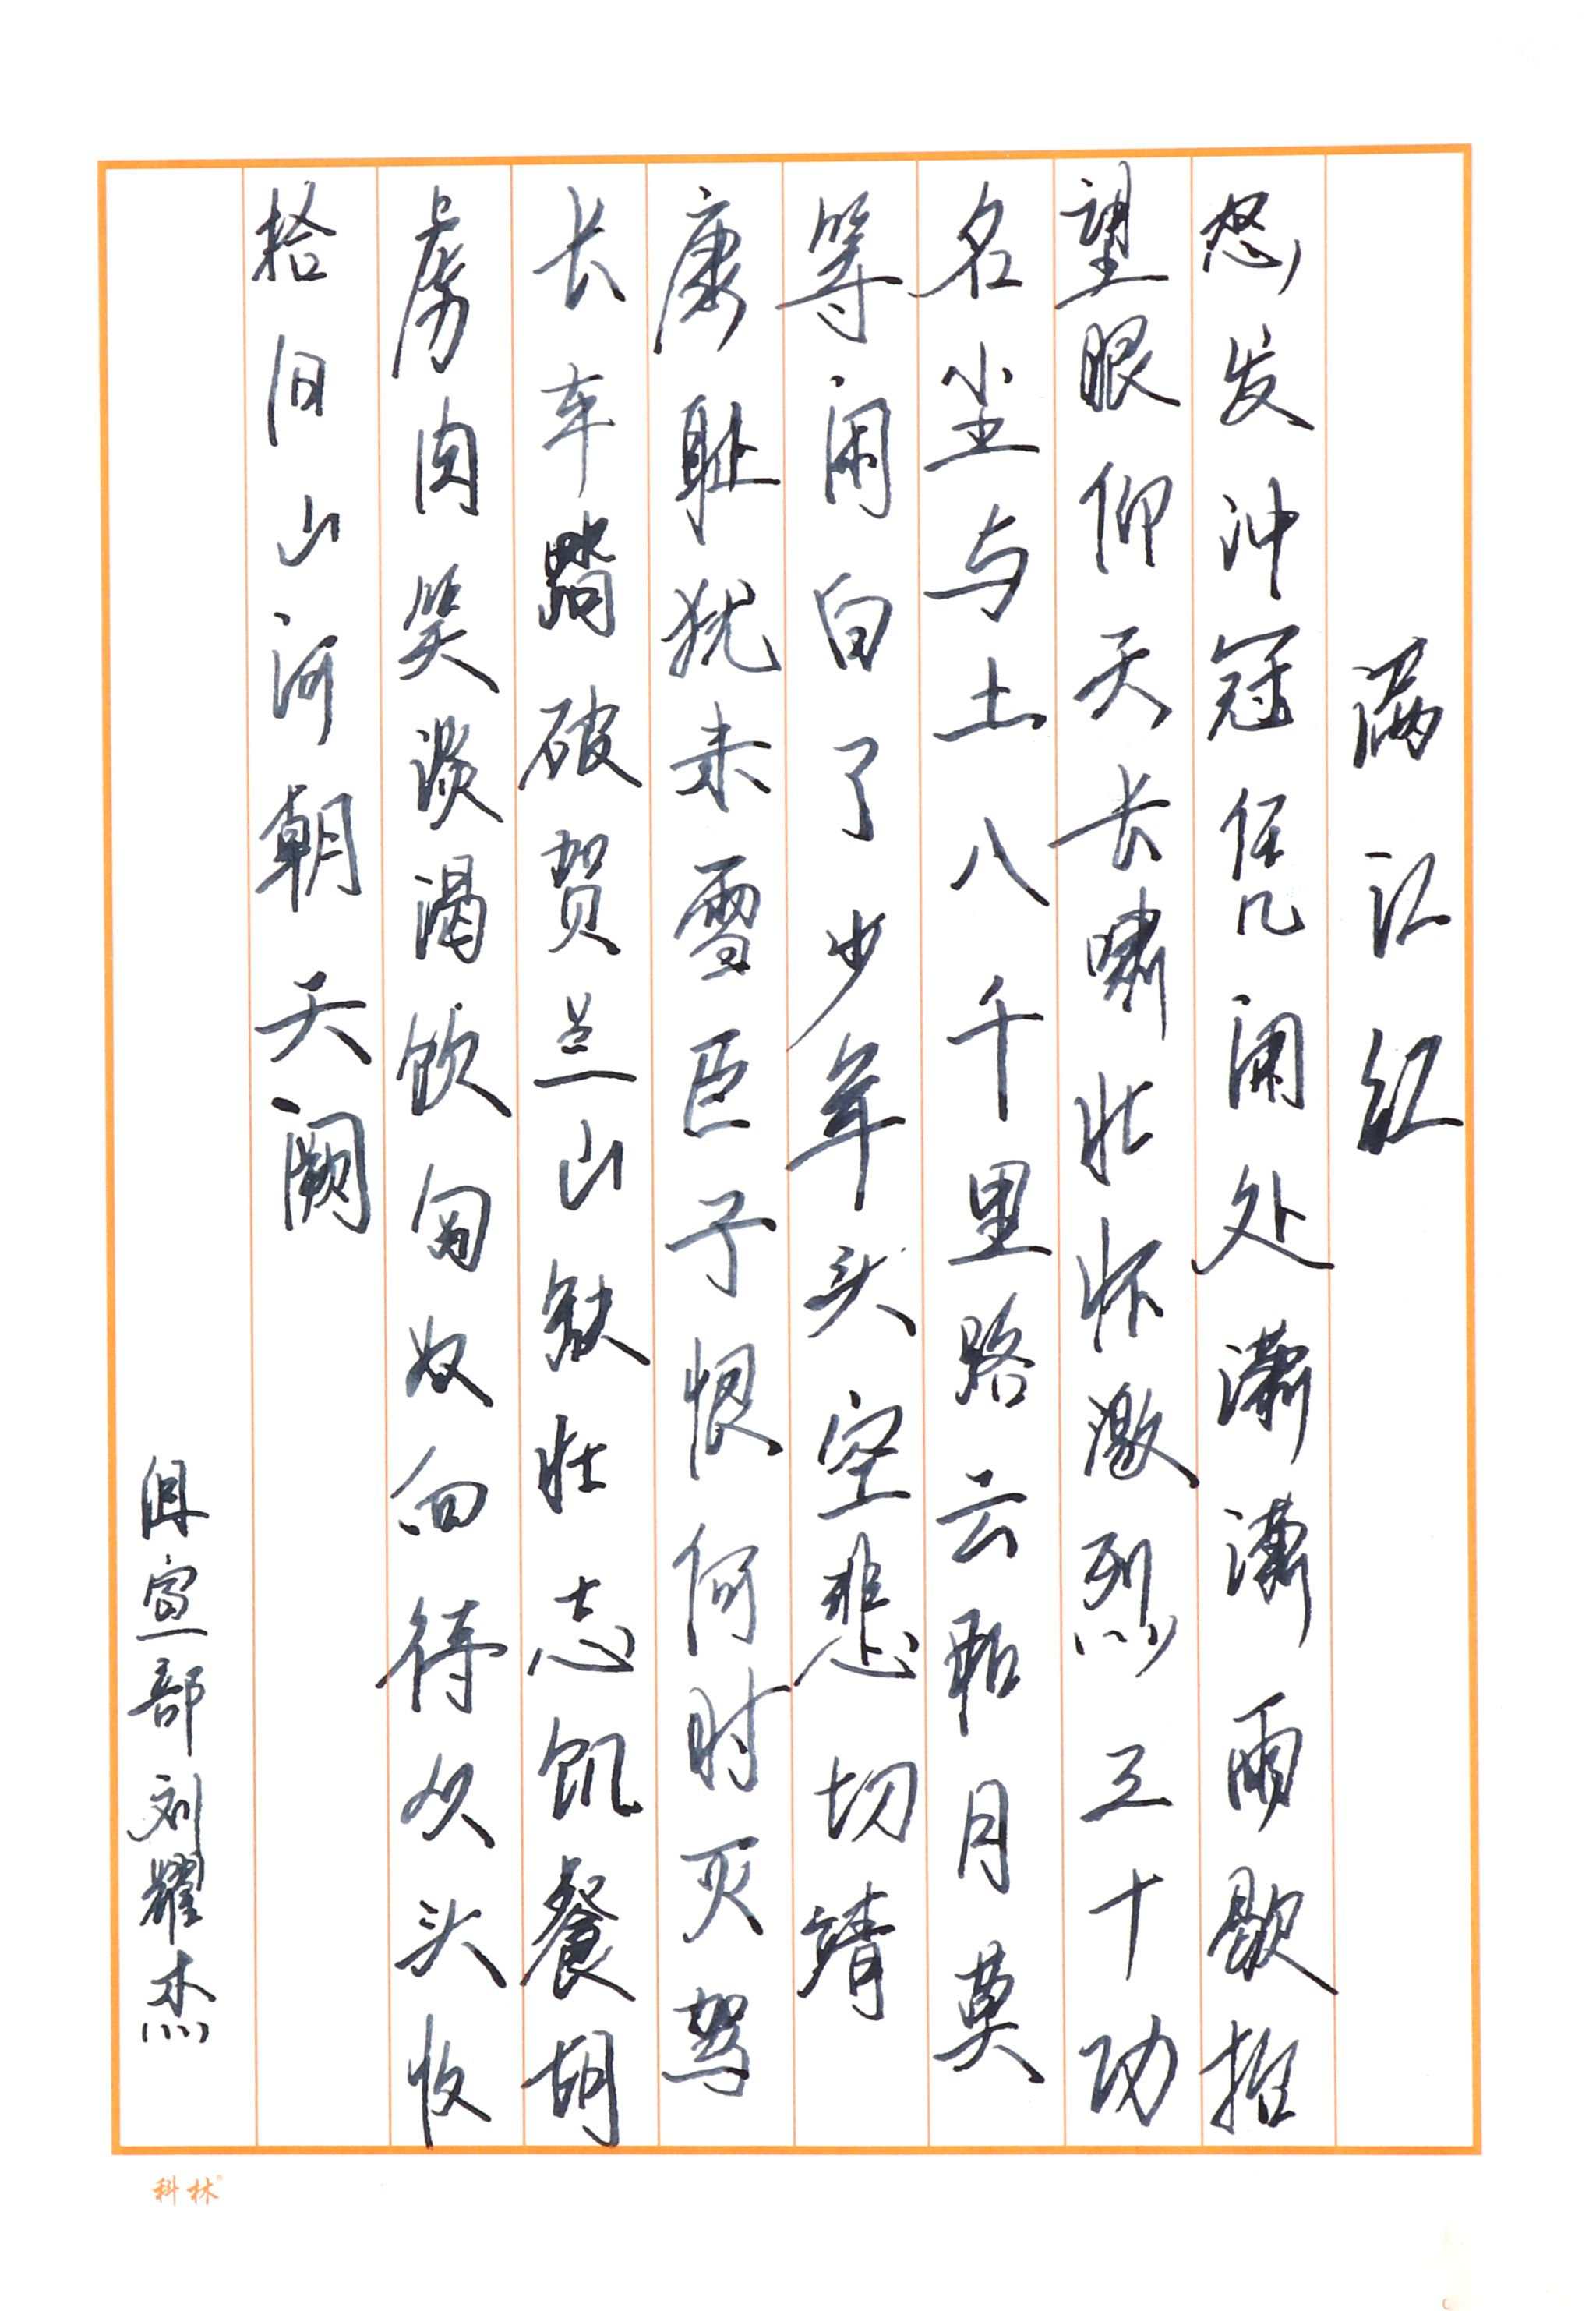 满江红
怒发冲冠凭阑处潇潇雨歇抬
望眼仰天长啸壮怀激烈三十功
名尘与土八千里路云和月莫
等闲白了少年头空悲切靖
康耻犹未雪臣子恨何时灭驾
长车踏破贺兰山缺壮志饥餐胡
虏肉笑谈渴饮匈奴血待从头收
拾旧山河朝天阙
宣部刘耀杰
科林